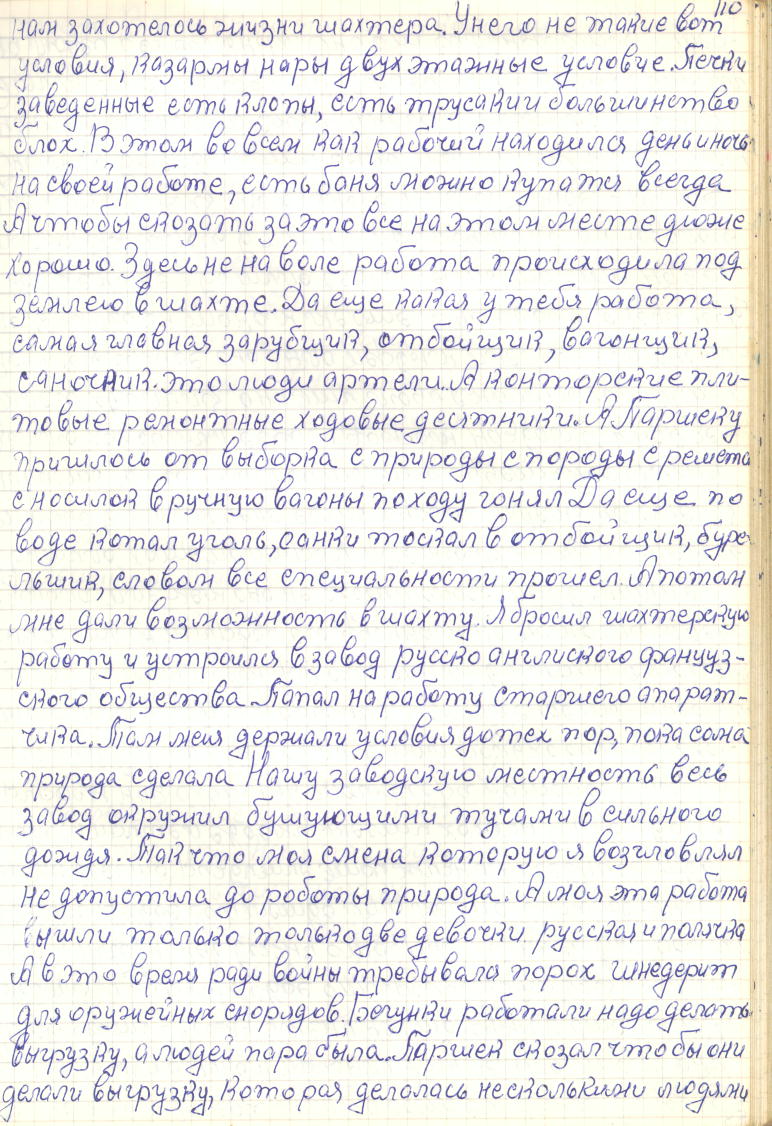 110
нам захотелось жизни шахтера. У него не такие вот
условия, казармы нары двухэтажные условие. Печки
заведенные есть клопы, есть трусаки и большинство
блох. В этом во всем как рабочий находился день и ночь
на своей работе, есть баня можно купатся всегда
А чтобы скозать за это все на этом месте дюже
хорошо. Здесь не на воле работа происходила под
землею в шахте. Да еще какая у тебя работа,
самая главная зарубщик, отбойщик, вагонщик,
саночник. Это люди артели. А конторские пли-
товые ремонтные ходовые десятники. А Паршеку
пришлось от выборка с природы с породы с решета
с носилок вручную вагоны походу гонял Да еще по
воде котал уголь, санки тоскал в отбойщик, буре-
льшик, словом все специальности прошел. А потом
мне дали возможность в шахту. Я бросил шахтерскую
работу и устроился в завод русско англиского француз-
ского общества. Папал на работу старшего апарат-
чика. Там меня держали условия до тех пор, пока сама
природа сделала Нашу заводскую местность весь
завод окружил бушующими тучами в сильного
дождя. Так что моя смена которую я возгловлял
не допустила до роботы природа. А моя эта работа
вышли только только две девочки русская и полячка
А в это время ради войны требывался порох шнедерит
для оружейных снорядов. Бегунки работали надо делать
выгрузку, а людей пара была. Паршек скозал чтобы они
делали выгрузку, которая делалась несколькими людями